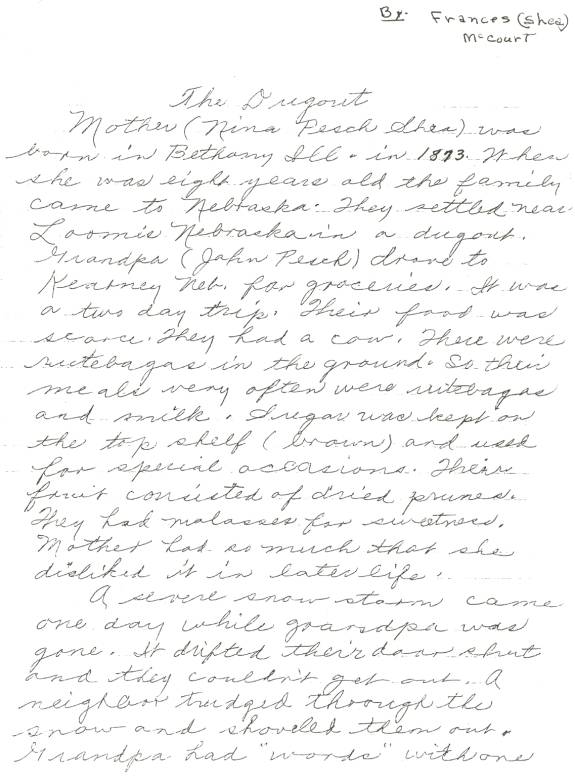 By: Frances (Shea)
McCourt
The Dugout
Mother (Nina Pesch Shea) was
born in Bethany Ill. in 1873. When
she was eight years old the family
came to Nebraska. They settled near
Loomis Nebraska in a dugout.
Grandpa (John Pesch) drove to
Kearney Neb. for groceries. It was
a two day trip. Their food was
scarce. They had a cow. There were
rutebagas in the ground. So their
meals very often were rutebagas
and milk. Sugar was kept on
the top shelf (brown) and used
for special occasions. Their
fruit consisted of dried prunes.
They had molasses for sweetness.
Mother had so much that she
disliked it in later life.
A severe snow storm came
one day while grandpa was
gone. It drifted their door shut
and they couldn't get out. A
neighbor trudged through the
snow and shoveled them out.
Grandpa had "words" with one